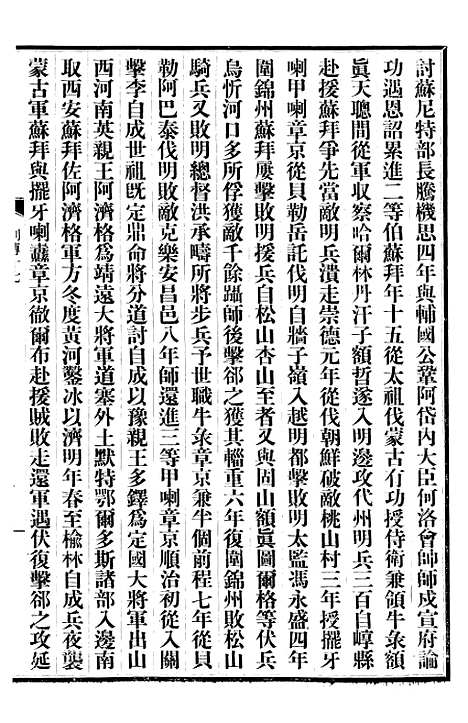 討蘇尼特部長騰機思四年與輔國公鞏阿岱內大臣何洛會師師戍宣府論
功遇恩詔累進二等伯蘇拜年十五從太祖伐蒙古有功授侍衛兼領牛彔額
眞天聰間從軍収察哈爾林丹汗子額哲遂入明邊攻代州明兵三百自崞縣
赴援蘇拜爭先當敵明兵潰走崇德元年從伐朝鮮破敵桃山村三年授擺牙
喇甲喇章京從貝勒岳託伐明自牆子嶺入越明都擊敗明太監馮永盛四年
圍錦州蘇拜屢擊敗明援兵自松山杏山至者又與固山額眞圖爾格等伏兵
烏忻河口多所俘獲敵千餘躡師後擊郤之獲其輜重六年復圍錦州敗松山
騎兵又敗明總督洪承疇所將步兵予世職牛彔章京兼半個前程七年從貝
勒阿巴泰伐明敗敵克樂安昌邑八年師還進三等甲喇章京順治初從入關
擊李自成世祖旣定鼎命將分道討自成以豫親王多鐸爲定國大將軍出山
西河南英親王阿濟格爲靖遠大將軍道塞外土默特鄂爾多斯諸部入邊南
取西安蘇拜佐阿濟格軍方冬度黃河鑿冰以濟明年春至楡林自成兵夜襲
蒙古軍蘇拜與擺牙喇纛章京徹爾布赴援賊敗走還軍遇伏復擊郤之攻延